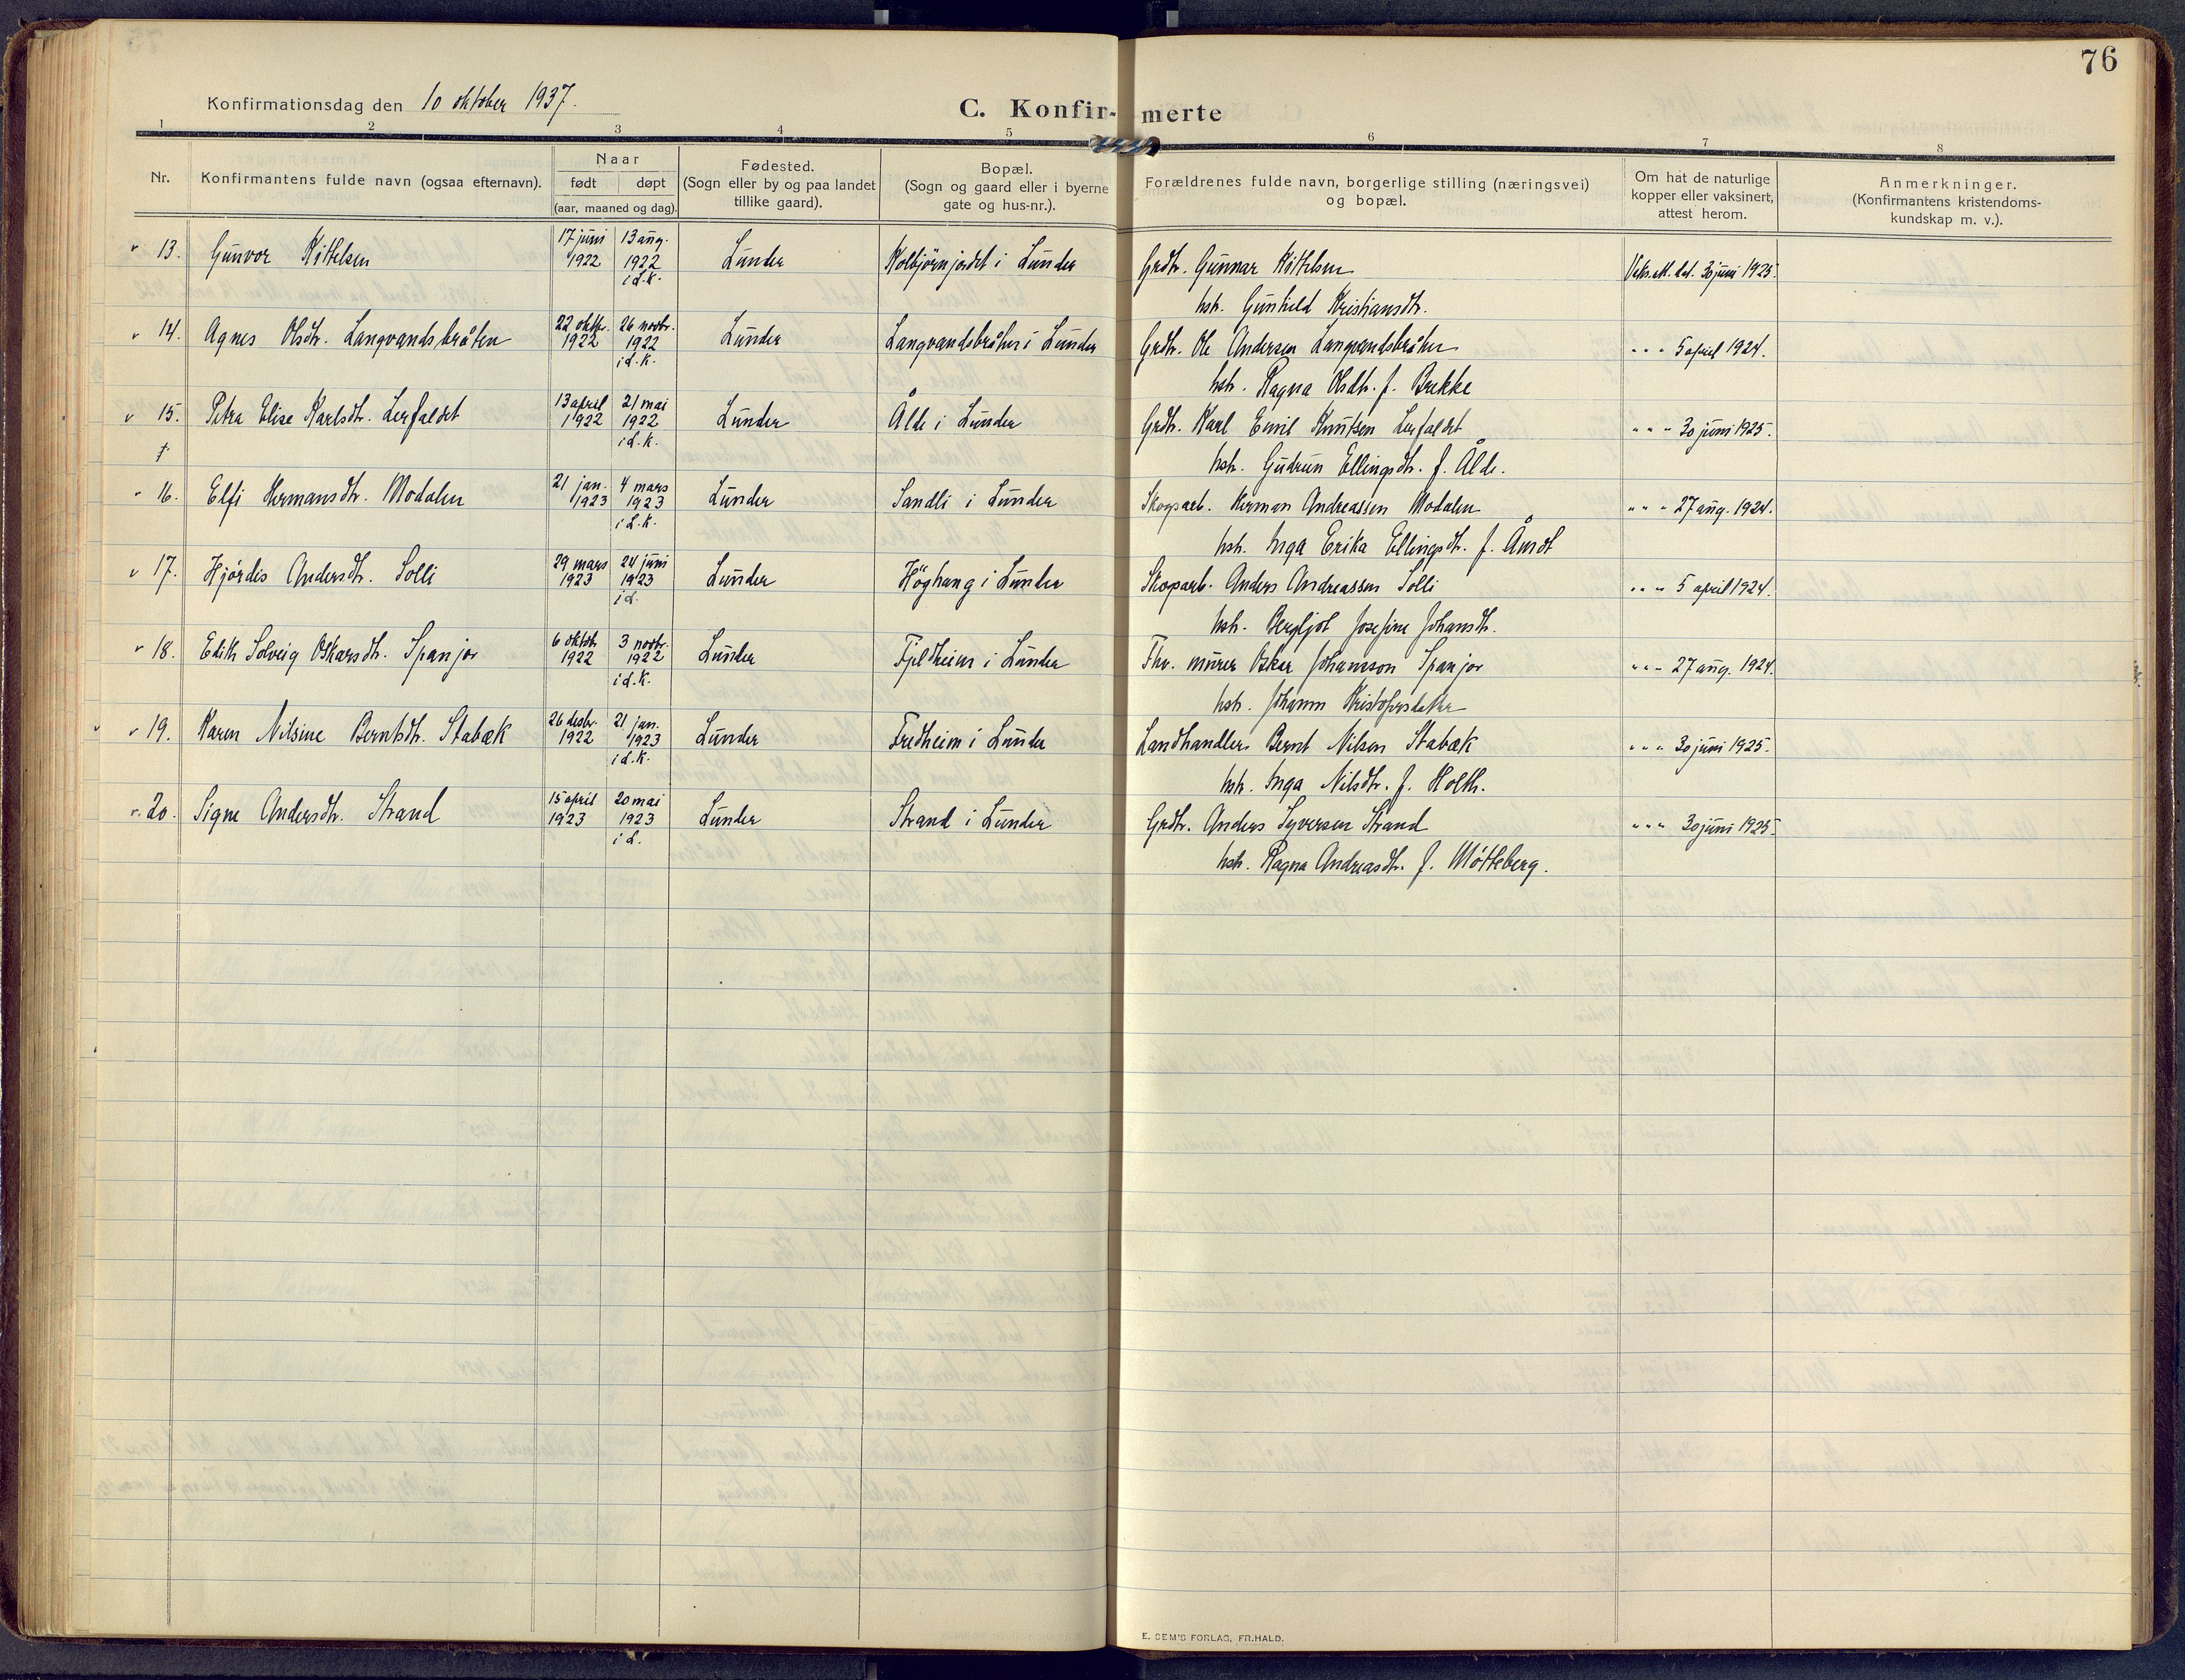 76
Konfirmationsdag den 10 oktober 1937.
C. Konfir- merte
1 2 3 4 5 6 7 8
Nr.
Konfirmantens fulde navn (ogsaa efternavn).
Naar
født døpt
(aar, maaned og dag).
Fødested.
(Sogn eller by og paa landet
tillike gaard).
Bopæl.
(Sogn og gaard eller i byerne
gate og hus-nr.).
Forældrenes fulde navn, borgerlige stilling (næringsvei)
og bopæl.
Om hat de naturlige
kopper eller vaksinert,
attest herom.
Anmerkninger.
(Konfirmantens kristendoms-
kundskap m. v.).
13. Gunvor Kittelsen 17 juni 1922 13 aug. 1922 i L.K. Lunder Kolbjörnjordet i Lunder Grdbr. Gunnar Kittelsen Vaks.att. dat. 30 juni 1925
hstr. Gunhild Kristiansdtr.
14. Agnes Olsdtr. Langvandsbråten 22 oktbr. 1922 26 novbr. 1922 i L.K. Lunder Langvandsbråten i Lunder Grdbr. Ole Andersen Langvandsbråten " " " 5 april 1924.
hstr. Ragna Olsdtr. f. Brekke
15. Petra Elise Karlsdtr. Lerfaldet 13 april 1922 21 mai 1922 i L.K. Lunder Ålde i Lunder Grdbr. Karl Emil Knutsen Lerfaldet " " " 30 juni 1925.
hstr. Gudrun Ellingsdtr. f. Ålde.
16. Elfi Hermansdtr. Modalen 21 jan. 1923 4 mars 1923 i L.K. Lunder Sandli i Lunder Skogsarb. Herman Andreassen Modalen " " " 27 aug. 1924.
hstr. Inga Erika Ellingsdtr. f. Åmot
17. Hjördis Andersdtr. Solli 29 mars 1923 24 juni 1923 i L. Lunder Höghaug i Lunder Skogsarb. Anders Andreassen Solli " " " 5 april 1924.
hstr. Bergljot Josefine Johansdtr.
18. Edith Solveig Oskarsdtr. Spanjor 6 oktbr 1922 3 novbr. 1922 i L.K. Lunder Fjeldheim i Lunder Fhv. murer Oskar Johansson Spanjor " " " 27 aug. 1924.
hstr. Johanna Kristofersdatter
19. Karen Nilsine Berntsdtr. Stabæk 26 desbr. 1922 21 jan. 1923 i L.K. Lunder Fredheim i Lunder Landhandler Bernt Nilsen Stabæk " " " 30 juni 1925.
hstr. Inga Nilsdtr. f. Holth.
20. Signe Andersdtr. Strand 15 april 1923 20 mai 1923 i L. Lunder Strand i Lunder Grdbr. Anders Syversen Strand " " " 30 juni 1925.
hstr. Ragna Andreasdtr. f. Mötteberg.
E. SEM'S FORLAG, FR.HALD.